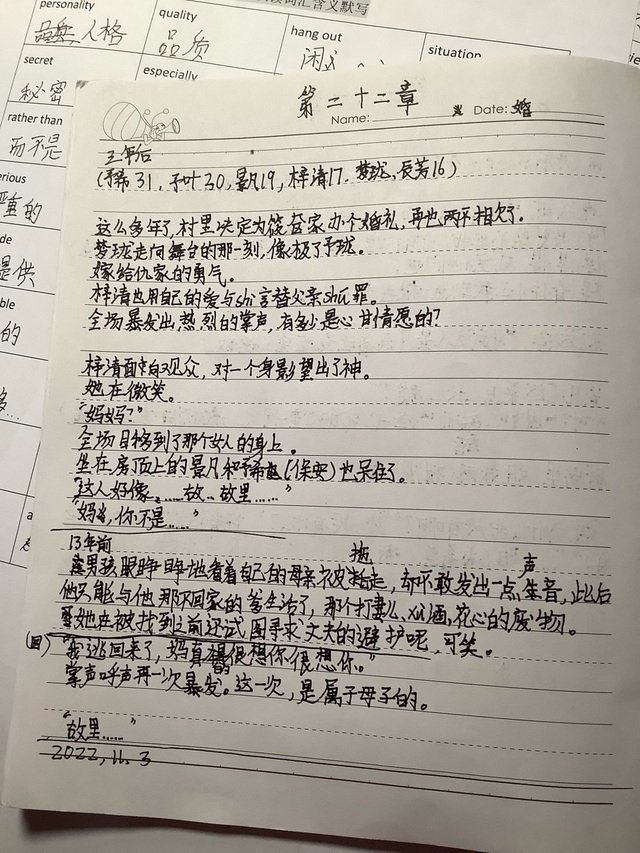 词汇含义默写
personality
品质，人格
quality
品质
hang out
situation
secret
秘密
especially
rather than
而不是
erious
重的
de
提供
ble
的
第二十二章
Name:
Date: 婚
三年后
31，予叶30，景月19，梓清17. 梦珑、辰芳16）
这么多年了，村里决定为筱管家办个婚礼，再也两不相欠了。
梦珑走向舞台的那一刻，像极了予珑。
嫁给仇家的勇气。
梓清也用自己的爱与shì言替父亲shú罪。
全场暴发出热烈的掌声，有多少是心甘情愿的？
梓清面向观众，对一个身影望出了神。
她在微笑。
“妈妈？”
全场目移到了那个女人的身上。
坐在房顶上的景月和(保安)也呆住了。
“这人好像……故..故里……”
“妈妈，你不是……”
13年前
拖
声
男孩眼睁睁地看着自己的母亲衣皮抬走，却不敢发出一点生音，此后
他只能与他那不回家的爹生活了，那个打妻儿、xù酒、花心的废物。
她在被找到之前还试图寻求丈夫的避护呢，可笑。
(回)
“我逃回来了，妈真的很想你很想你。”
掌声呼声再一次暴发。这一次，是属于母子的。
“故里……”
2022，11. 3